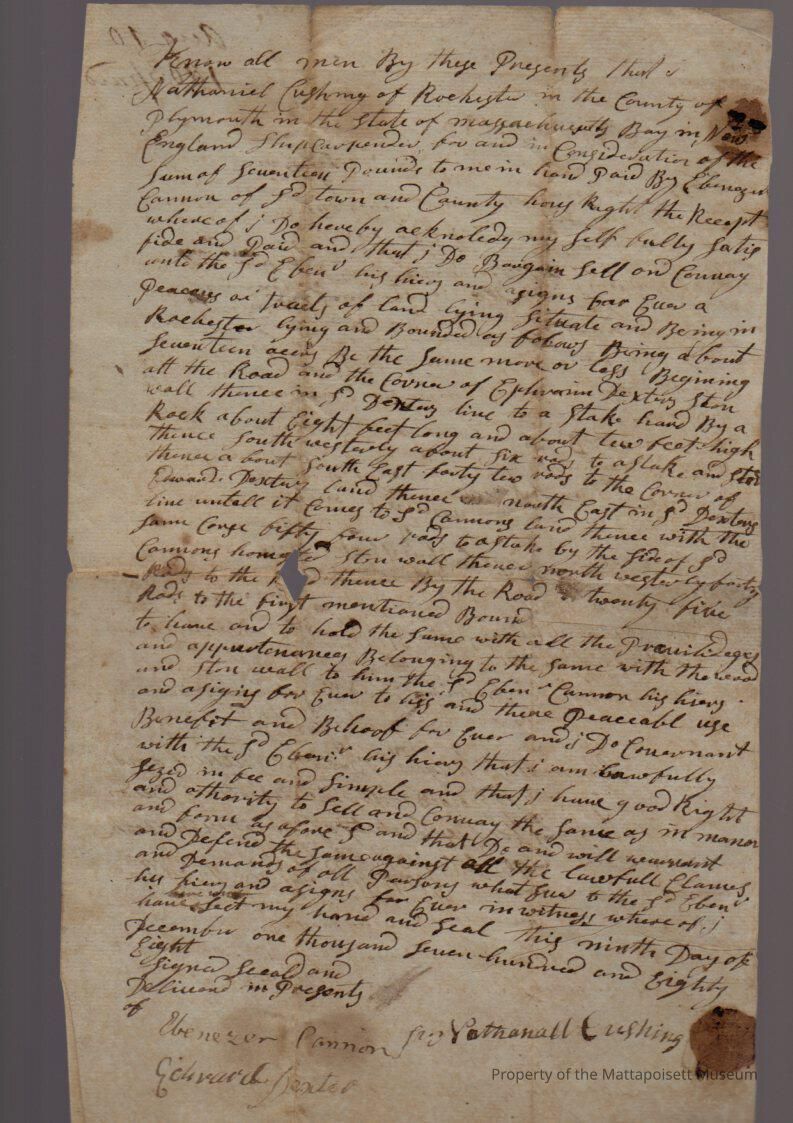 Know all men By these Presents that i
Nathaniel Cushing of Rochester in the County of
Plymouth in the State of massachusetts Bay in New
England Shipcarpender for and in Consideration of the
Sum of Seventeen Pounds to me in hand Paid By Ebenezer
Cannon of Sd town and County hous Right the Recept
where of i Do hereby acknoledg my Self fully Satis
fide and Paid and that i Do Bargain Sell and Convay
unto the Sd Ebenr his hiers and asigns for Euer a
Peaces or tracts of land lying Situate and Being in
Rochester lying and Bounded as follows Being about
Seventeen acers Be the Same more or less Begining
att the Road and the Corner of Ephraim Dexters Ston
wall thence in Sd Dexters line to a Stake hard By a
Rock about Eight feet long and about tew feet high
thence South westerly about Six rods to a Stake and Ston
thence a bout South East forty tew rods to the Corner of
Edward Dexters land thence north East in Sd Dextors
line untall it Comes to Sd Cannons land thence with the
Same Corse fifty four rods to a Stake by the Side of Sd
Cannons Ston wall thence north westerly forty
Rods to the thence By the Road twenty five
Rods to the first mentioned Bound
to haue and to hold the Same with all the Preuilidges
and appurtenances Belonging to the Same with the wood
and Ston wall to him the Sd Ebenr Cannon his hiers
and asigns for Euer to his and there Peaceabl use
Benefit and Behoof for Euer and i Do Couernant
with the Sd Ebenr his hiers that i am Lawfully
Sezed in fee and Simple and that i haue good Right
and athority to Sell and Convay the Same as in manor
and form as afore Sd and that Do and will warrant
and Defend the Same against all the lawfull Clames
and Demands of all Parsons what Euer to the Sd Ebenr
his hiers and asigns for Euer in witness where of i
have Sect my hand and Seal this ninth Day of
December one thousand Seven hundred and Eighty
Eight
Signed Seeald and
Deliverd in Presents
of
Ebenezer Cannon Nathanall Cushing
Edward Dexter
Property of the Mattapoisett Museum